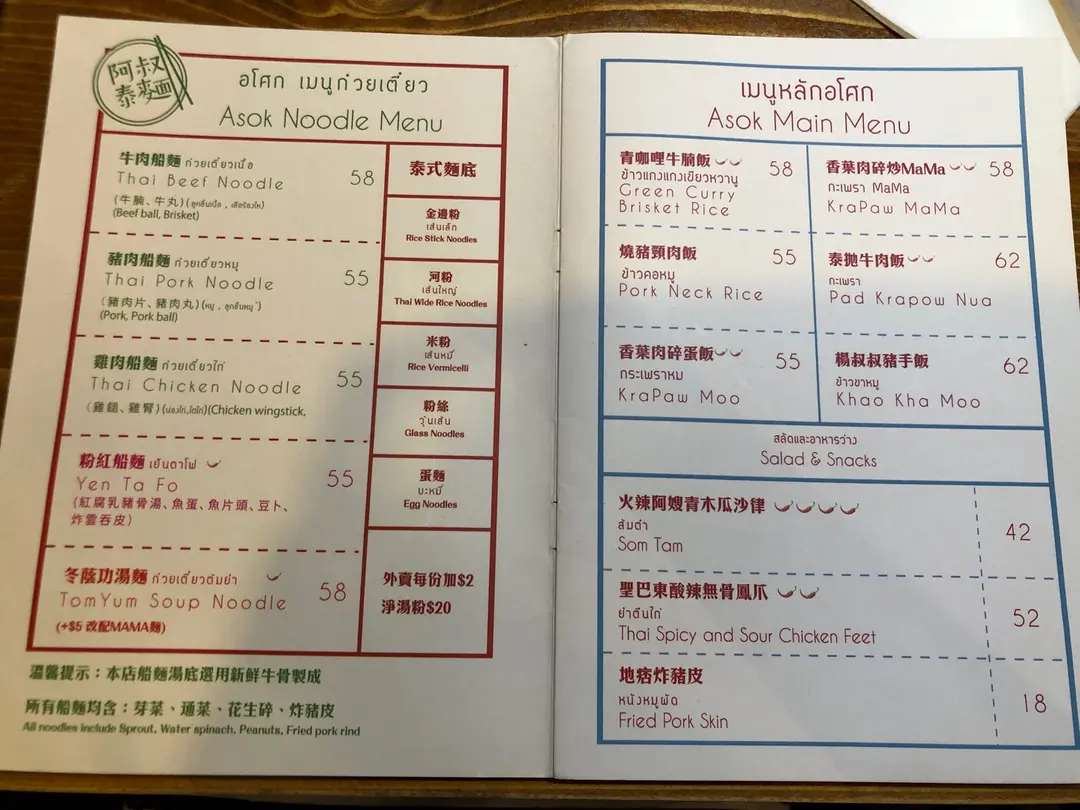 阿叔
泰麵
อโศก เมนูก๋วยเตี๋ยว
Asok Noodle Menu
牛肉船麵 ก๋วยเตี๋ยวเนื้อ
Thai Beef Noodle 58
(牛腩、牛丸) (ลูกชิ้นเนื้อ , เสือร้องไห้)
(Beef ball, Brisket)
豬肉船麵 ก๋วยเตี๋ยวหมู
Thai Pork Noodle 55
(豬肉片、豬肉丸) (หมู , ลูกชิ้นหมู)
(Pork, Pork ball)
雞肉船麵 ก๋วยเตี๋ยวไก่
Thai Chicken Noodle 55
(雞鎚、雞腎) (น่องไก่,ไตไก่)(Chicken wingstick,
粉紅船麵 เย็นตาโฟ
Yen Ta Fo 55
(紅腐乳豬骨湯、魚蛋、魚片頭、豆卜、
炸雲吞皮)
冬蔭功湯麵 ก๋วยเตี๋ยวต้มยำ
TomYum Soup Noodle 58
(+$5 改配MAMA麵)
泰式麵底
金邊粉
เส้นเล็ก
Rice Stick Noodles
河粉
เส้นใหญ่
Thai Wide Rice Noodles
米粉
เส้นหมี่
Rice Vermicelli
粉絲
วุ้นเส้น
Glass Noodles
蛋麵
บะหมี่
Egg Noodles
外賣每份加$2
淨湯粉$20
溫馨提示：本店船麵湯底選用新鮮牛骨製成
所有船麵均含：芽菜、通菜、花生碎、炸豬皮
All noodles include Sprout, Water spinach, Peanuts, Fried pork rind
เมนูหลักอโศก
Asok Main Menu
青咖喱牛腩飯 58
ข้าวแกงแกงเขียวหวานู
Green Curry
Brisket Rice
燒豬頸肉飯 55
ข้าวคอหมู
Pork Neck Rice
香葉肉碎蛋飯 55
กระเพราหม
KraPaw Moo
香葉肉碎炒MaMa 58
กะเพรา MaMa
KraPaw MaMa
泰拋牛肉飯 62
กะเพรา
Pad Krapow Nua
楊叔叔豬手飯 62
ข้าวขาหมู
Khao Kha Moo
สลัดและอาหารว่าง
Salad & Snacks
火辣阿嫂青木瓜沙律
ส้มตำ 42
Som Tam
聖巴東酸辣無骨鳳爪
ยำตีนไก่ 52
Thai Spicy and Sour Chicken Feet
地痞炸豬皮
หนังหมูผัด 18
Fried Pork Skin